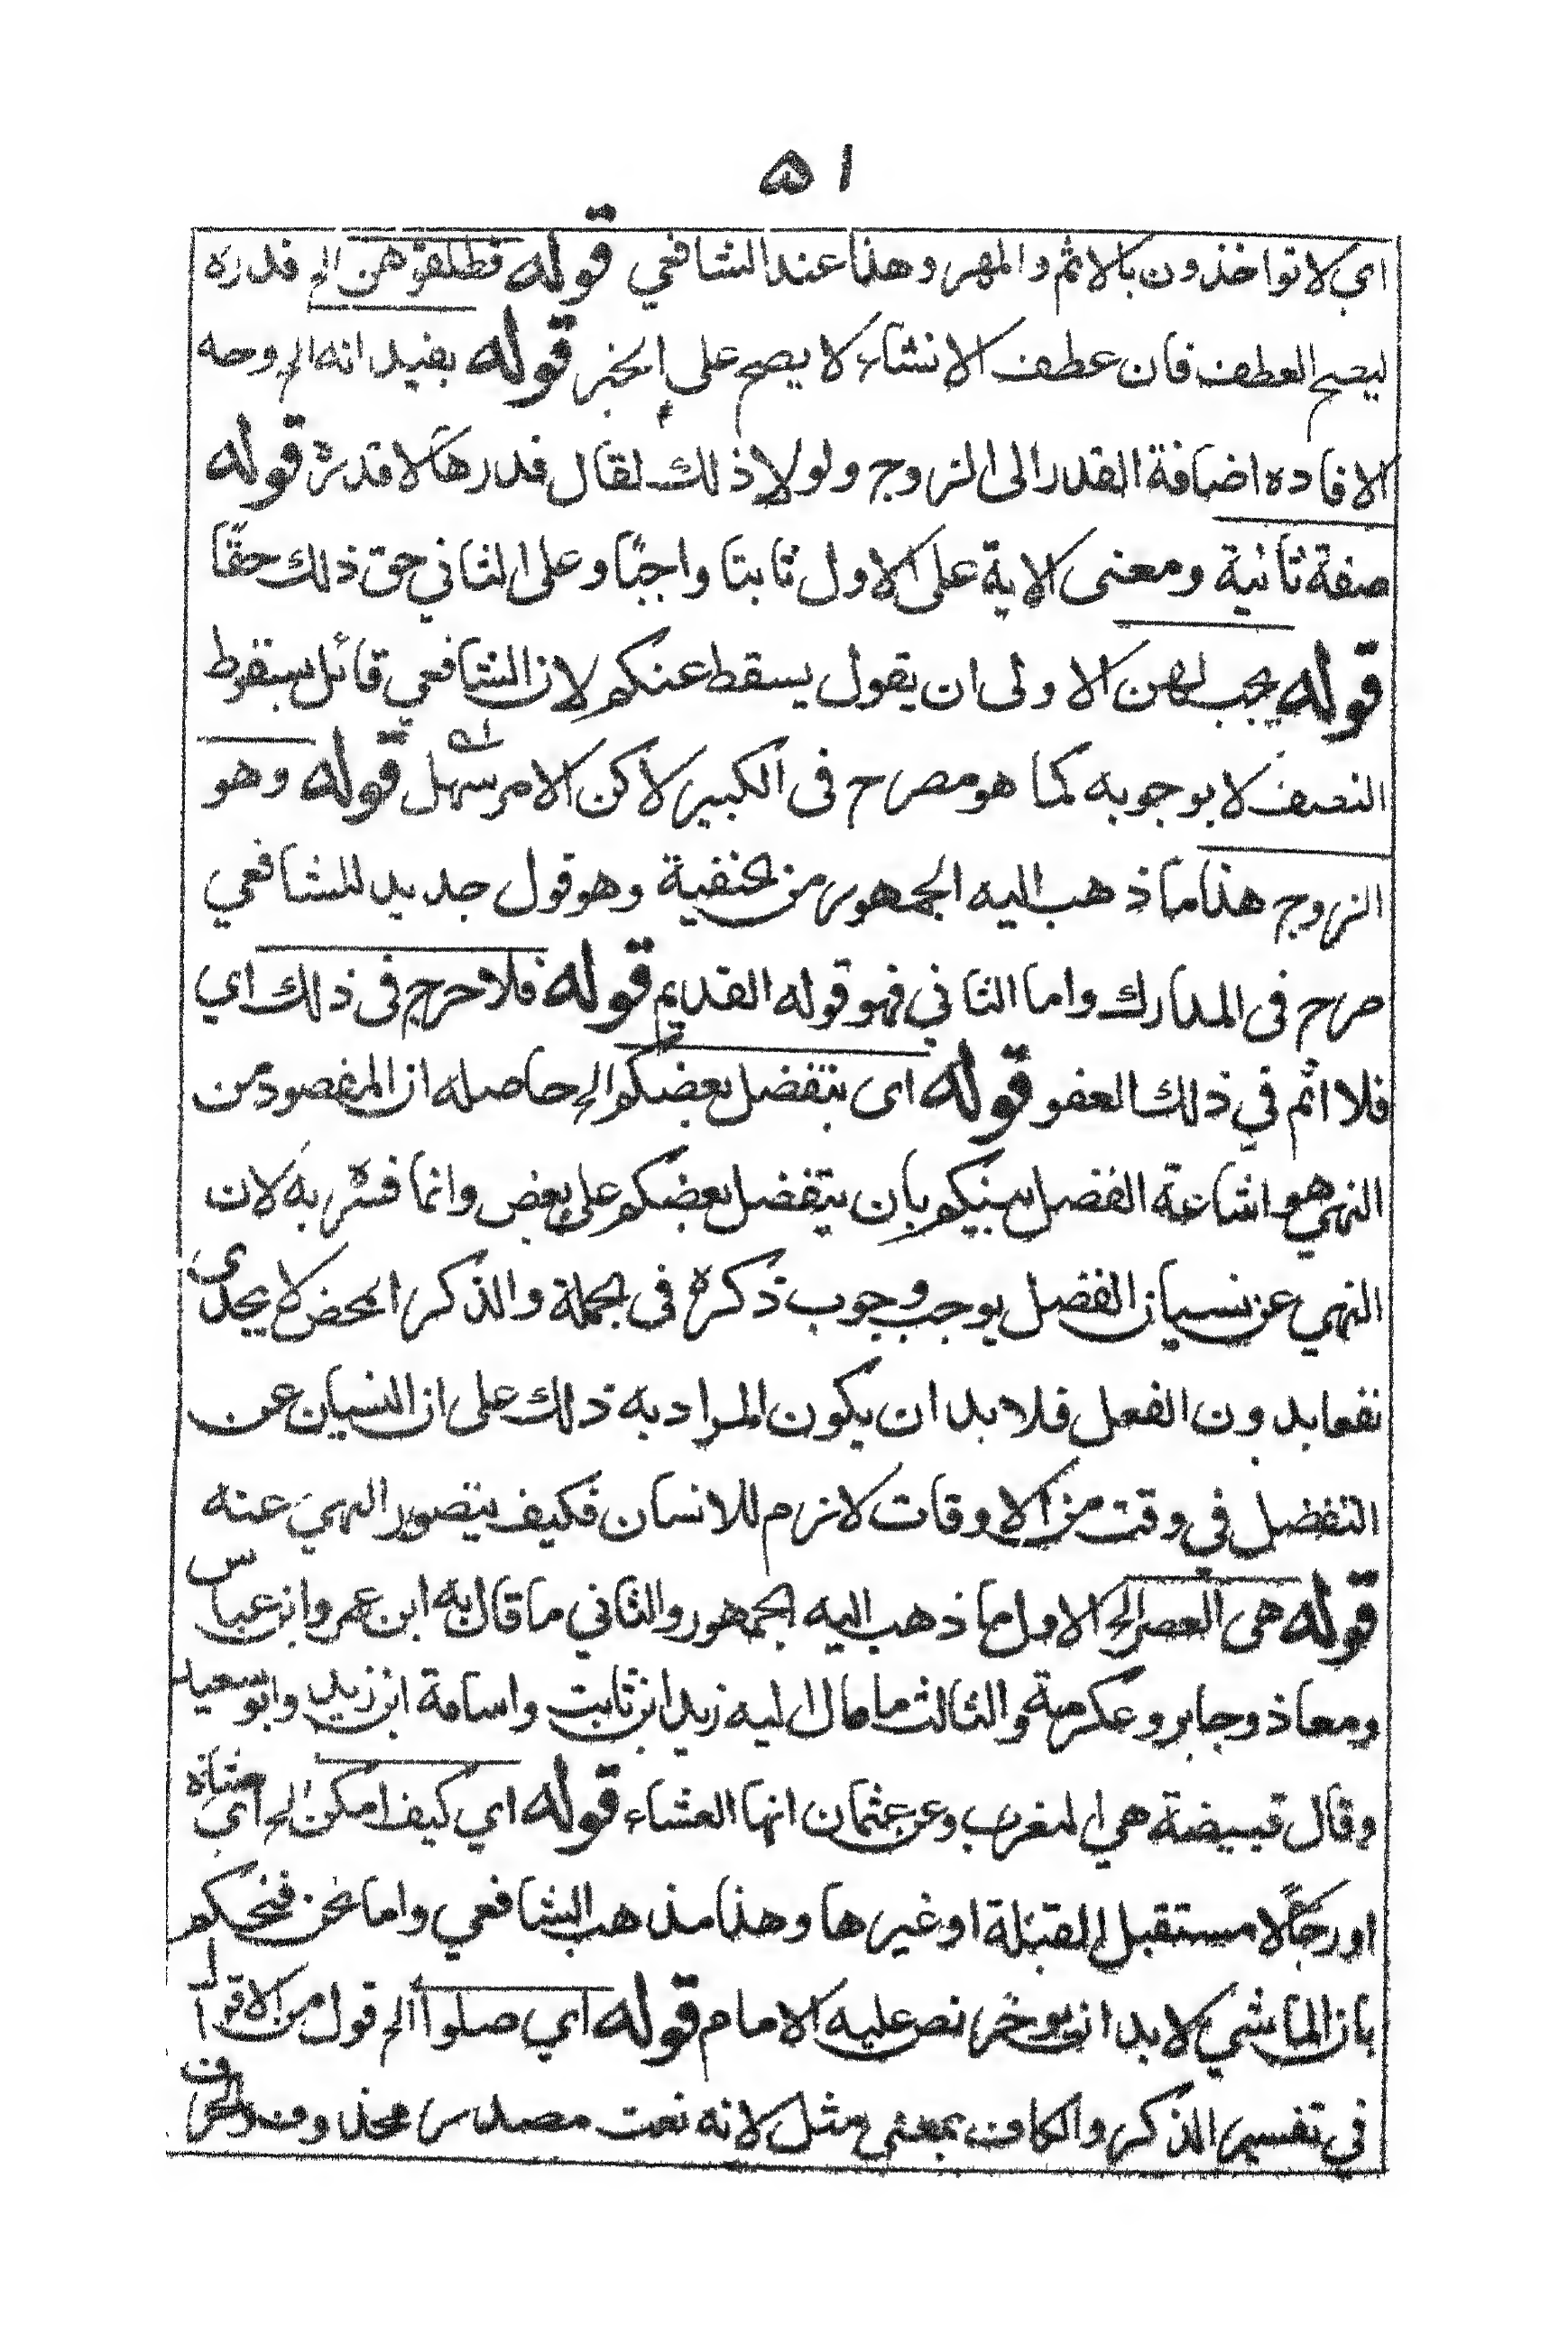 ٥١
اي لا تواخذون بالاثم والمهر وهذا عند الشافعي قوله فطلقوهن الخ قدره
ليصح العطف فان عطف الانشاء لا يصح على الخبر قوله يفيد انه الخ وجه
الافاده اضافة القدر الى الزوج ولولا ذلك لقال قدرها لا قدره قوله
صفة ثانية ومعنى الاية على الاول ثابتا واجبًا وعلى الثاني حق ذلك حقًا
قوله يجب لهن الاولى ان يقول يسقط عنكم لان الشافعي قائل بسقوط
النصف لا بوجوبه كما هو مصرح فى الكبير لاكن الامر سهل قوله وهو
الزوج هذا ما ذهب اليه الجمهور من الحنفية وهو قول جديد للشافعي
صرح فى المدارك واما الثاني فهو قوله القديم قوله فلا حرج فى ذلك اي
فلا اثم في ذلك العفو قوله اى يتفضل بعضكم الخ حاصله ان المقصود من
النهي هو اشاعة الفضل بينكم بان يتفضل بعضكم على بعض وانما فسر به لان
النهي عن نسيان الفضل يوجب وجوب ذكره فى الجملة والذكر المحض لا يجدى
نفعا بدون الفعل فلا بد ان يكون المراد به ذلك على ان النسيان عن
التفضل في وقت من الاوقات لازم للانسان فكيف يتصور النهي عنه
قوله هى العصر الخ الاول ما ذهب اليه الجمهور والثاني ما قال به ابن عمر وابن عباس
ومعاذ وجابر وعكرمة والثالث ما مال اليه زيد ابن ثابت واسامة ابن زيد وابو سعيد
وقال قبيضة هي المغرب وعن عثمان انها العشاء قوله اي كيف امكن الخ اي مشاة
او رجالًا مستقبل القبلة او غيرها وهذا مذهب الشافعي واما نحن فنحكم
بان الماشي لا بد ان يوخر نص عليه الامام قوله اي صلوا الخ قول من الاقوال
في تفسير الذكر والكاف بمعنى مثل لانه نعت مصدر محذوف والحرف